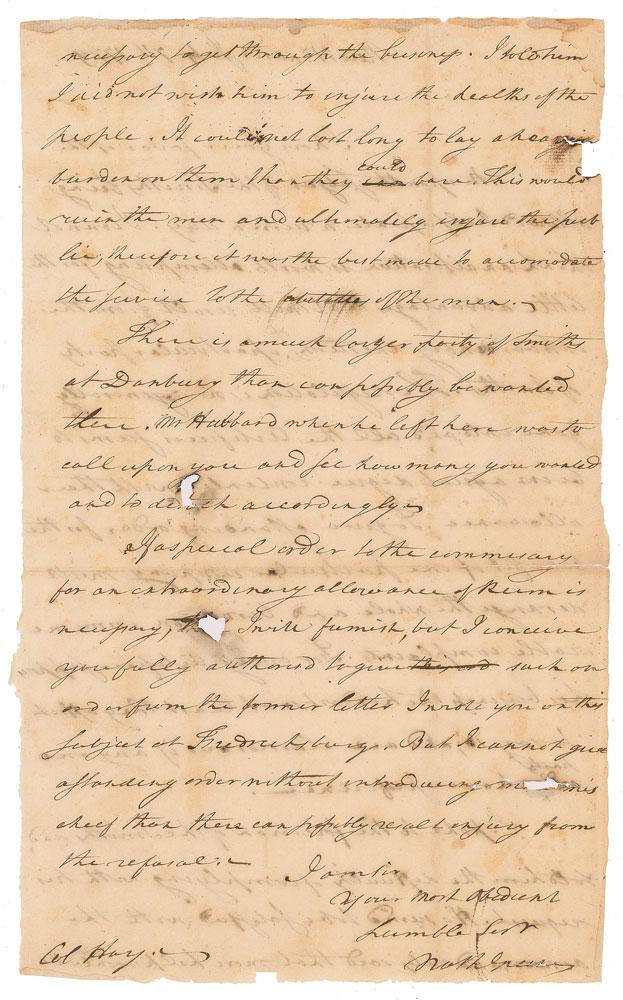 necessary to get through the business. I told him
I did not wish him to injure the dealths of the
people. It could not last long to lay a heavier
burden on them than they could bare. This would
ruin the men and ultimately injure the pub
lic, therefore it was the best mode to accomodate
the service to the abilities of the men.
There is a much larger party of Smiths
at Danbury than can possibly be wanted
there. Mr Hubbard when he left here was to
call upon you and see how many you wanted
and to detach accordingly.
If a special order to the commisary
for an extraordinary allowance of Rum is
necessary, I will furnish, but I conceive
you fully authorised to give this ord such an
order from the former letter I wrote you on this
subject at Fredricksburg. But I cannot give
a standing order without introducing more mis
cheef than there can possibly result injury from
the refusal.
I am Sir
Your most Obedient
humble Servt
Nath Greene
Col Hay.